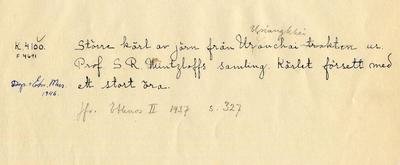 Urianghkai
K. 4100. Större kärl av järn från Uranchai trakten ur
F 4691 Prof S. R. Mintzloffs samling. Kärlet försett med
Dep. i Etn. Mus. 1946. ett stort öra.
Jfr. Ethnos II 1937 s. 327